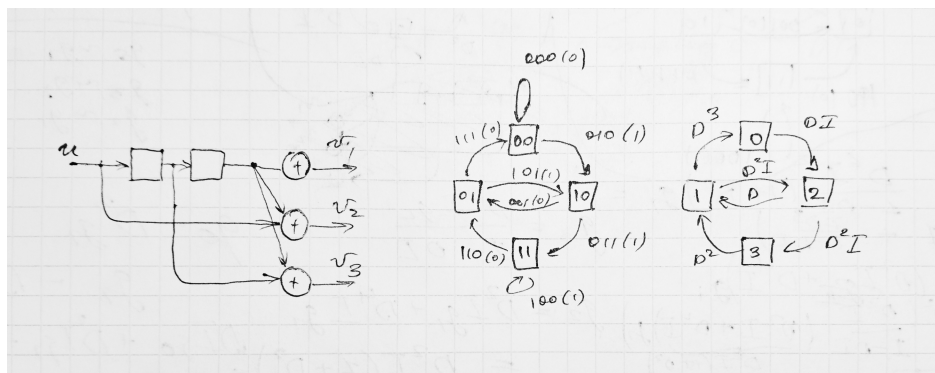 u
v₁
+
v₂
+
v₃
+
000(0)
111(0)
00
010(1)
101(1)
01
001(0)
10
110(0)
11
011(1)
100(1)
D³
0
DI
D²I
1
D
2
D²
3
D²I